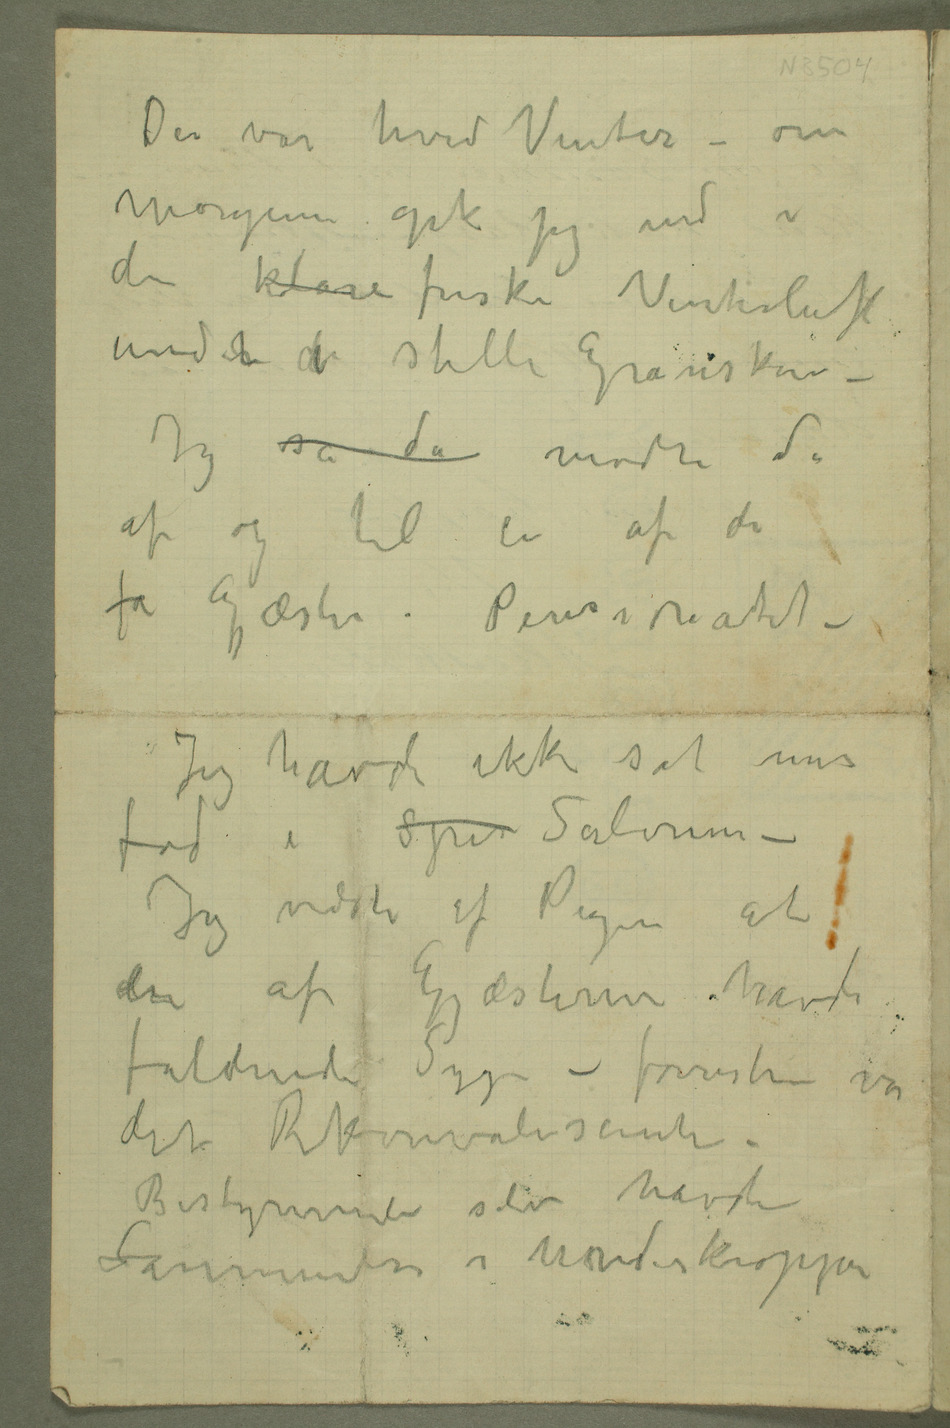 N3504
Det var hvid Vinter – om
morgenen gik jeg ud i
den klare friske Vinterluft
under de stille Graneskov –
Jeg så da mødte da
af og til en af de
få Gjæster i Pensionatet –
Jeg havde ikke sat min
fod i Spis Salonen –
Jeg vidste af Pigen at
en af Gjæsterne havde
faldende Syge – forresten var
det Rekonvalesenter.
Bestyrerinden selv havde
Lammelse i Underkroppen